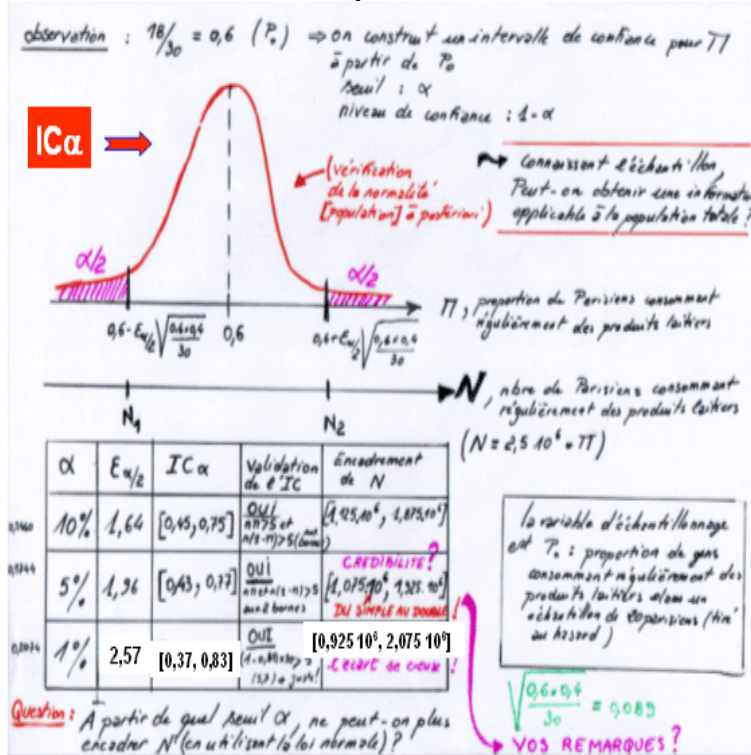 observation : 18/30 = 0,6 (P₀) ⇒ on construit un intervalle de confiance pour Π
à partir de P₀
seuil : α
niveau de confiance : 1-α
ICα
(vérification
de la normalité
[population] à postériori)
connaissant l'échantillon,
Peut-on obtenir une information
applicable à la population totale ?
α/2
α/2
0,6 - Eα/2 √(0,6×0,4/30)
0,6
0,6 + Eα/2 √(0,6×0,4/30)
Π, proportion de Parisiens consommant
régulièrement des produits laitiers
N, nbre de Parisiens consommant
régulièrement des produits laitiers
(N = 2,5 10⁶ • Π)
N₁
N₂
α Eα/2 ICα Validation de l'IC Encadrement de N
10% 1,64 [0,45, 0,75] OUI [1,125.10⁶, 1,875.10⁶]
CREDIBILITE ?
5% 1,96 [0,43, 0,77] OUI [1,075.10⁶, 1,925.10⁶]
DU SIMPLE AU DOUBLE !
1% 2,57 [0,37, 0,83] OUI [0,925 10⁶, 2,075 10⁶]
L'écart se creuse !
la variable d'échantillonnage
est P₀ : proportion de gens
consommant régulièrement des
produits laitiers dans un
échantillon de parisiens (tiré
au hasard)
√(0,6×0,4/30) = 0,089
Question : À partir de quel seuil α, ne peut-on plus
encadrer N (en utilisant la loi normale) ?
VOS REMARQUES ?